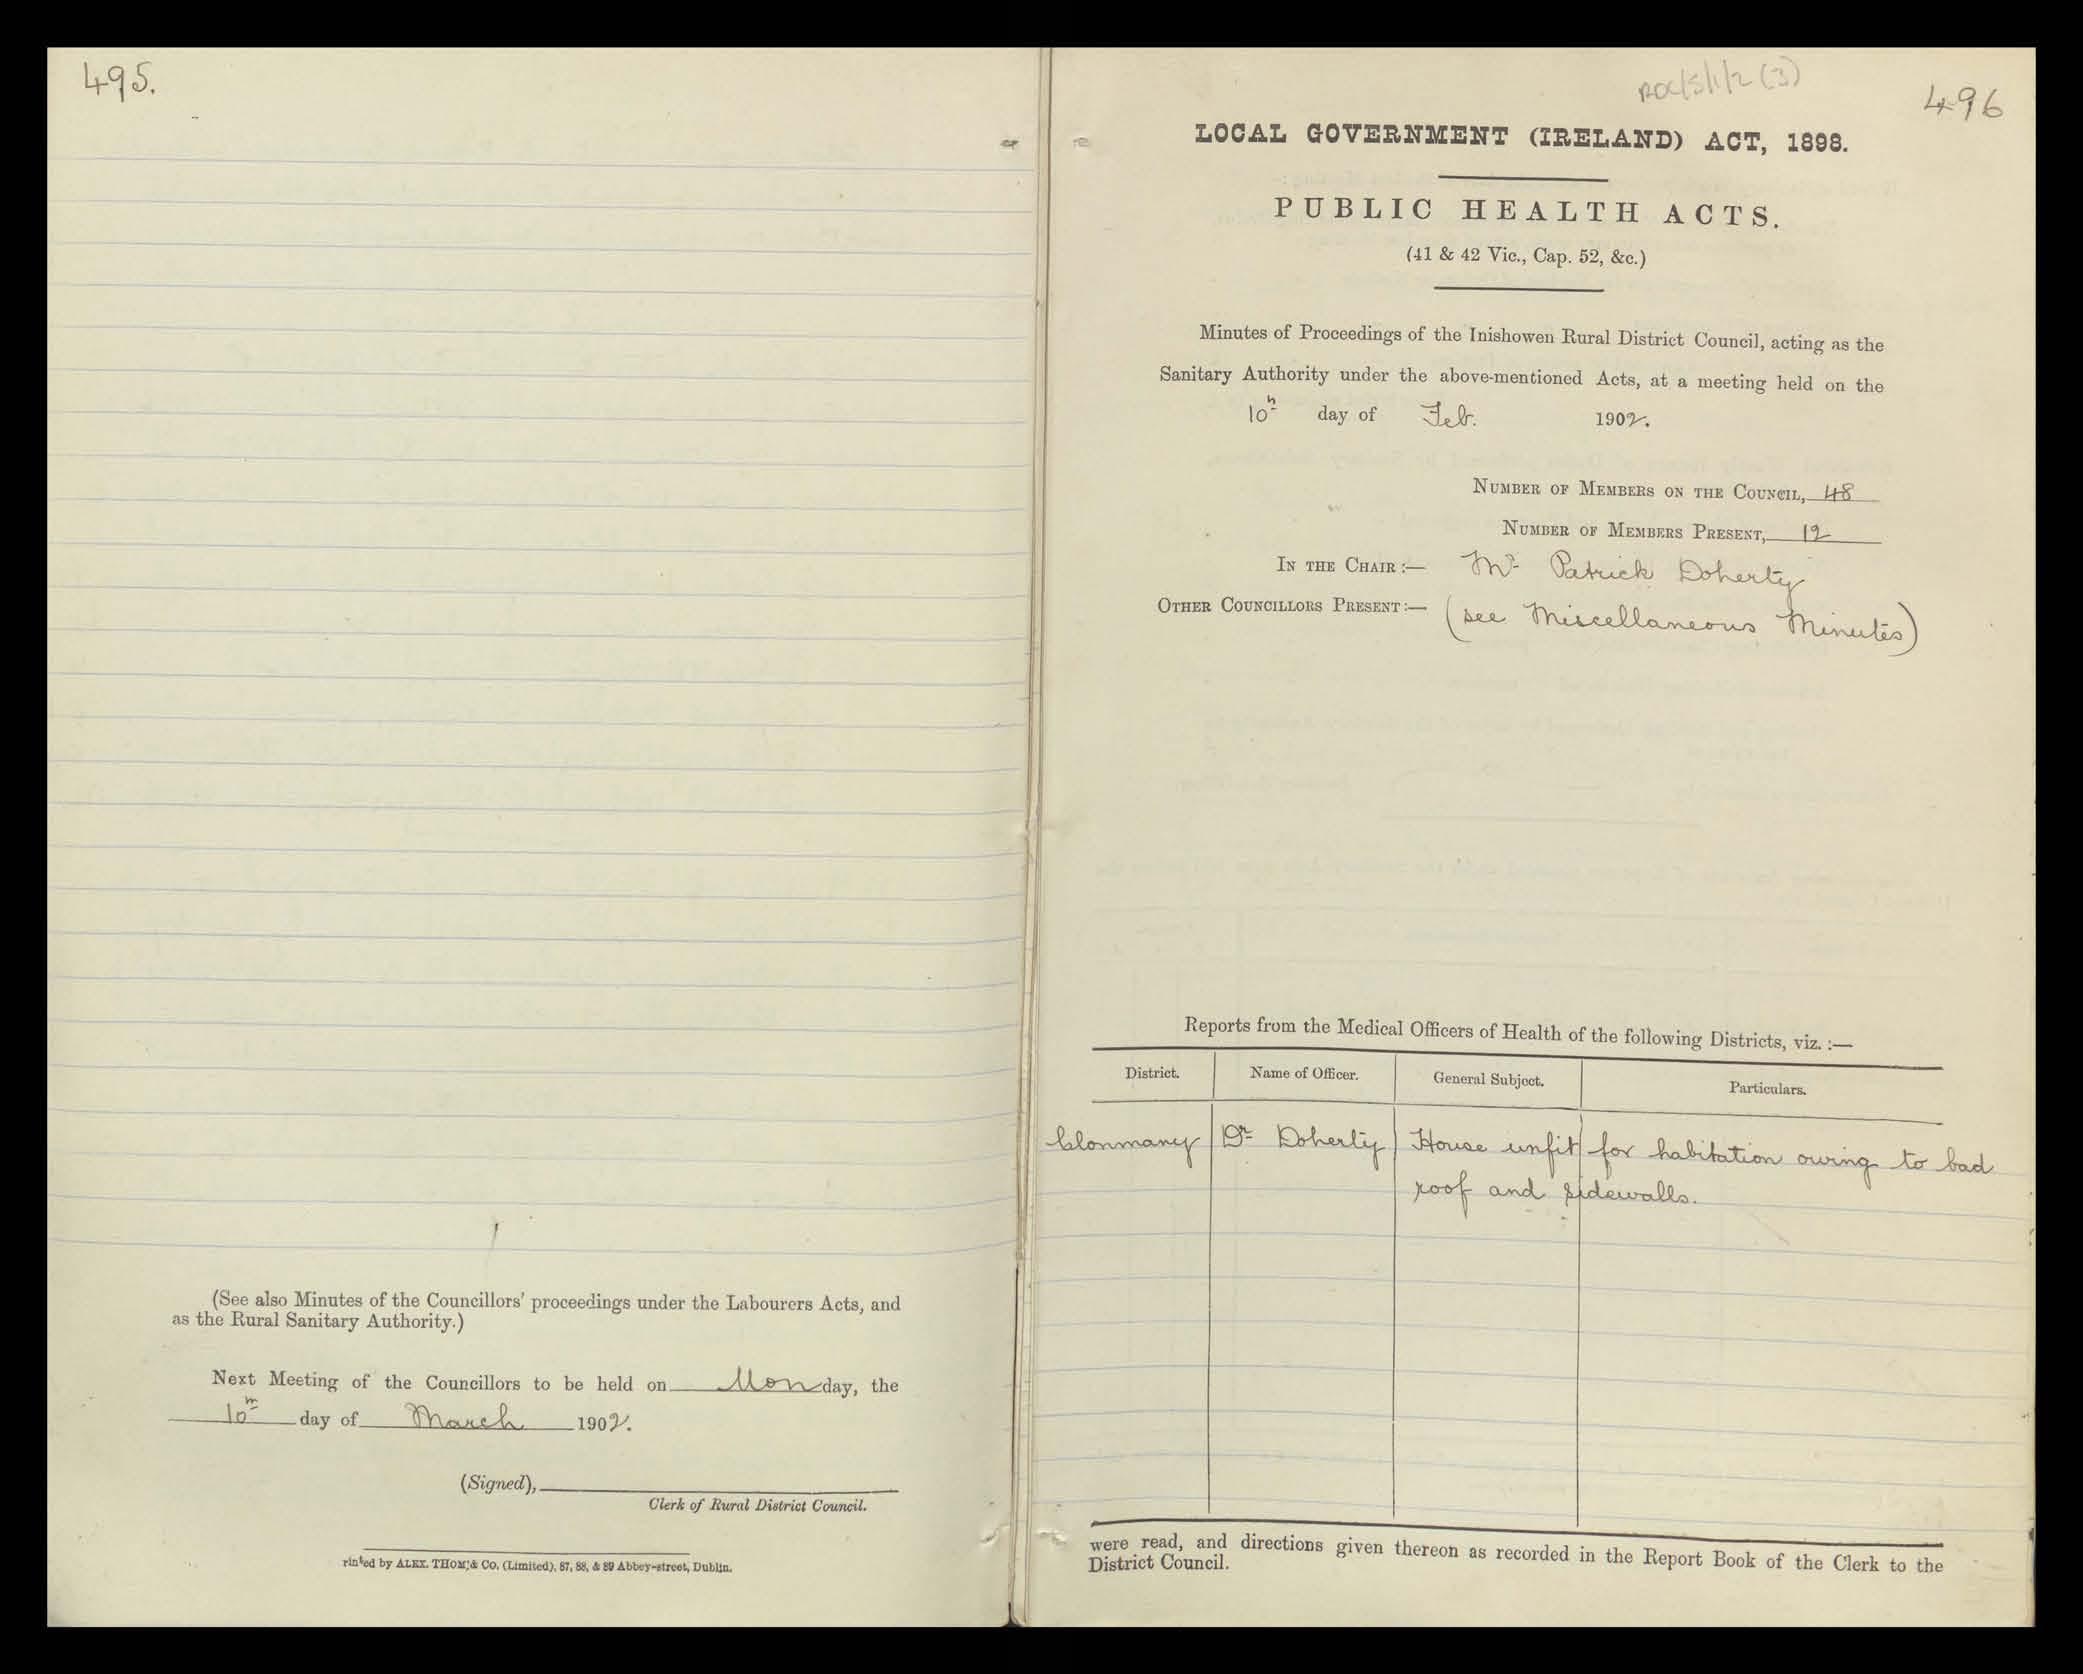 495.
(See also Minutes of the Councillors' proceedings under the Labourers Acts, and
as the Rural Sanitary Authority.)
Next Meeting of the Councillors to be held on Monday, the
10th day of March 1902.
(Signed),
Clerk of Rural District Council.
rinted by ALEX. THOM & Co. (Limited), 87, 88, & 89 Abbey-street, Dublin.
RDC/5/1/2 (3)
496
LOCAL GOVERNMENT (IRELAND) ACT, 1898.
PUBLIC HEALTH ACTS.
(41 & 42 Vic., Cap. 52, &c.)
Minutes of Proceedings of the Inishowen Rural District Council, acting as the
Sanitary Authority under the above-mentioned Acts, at a meeting held on the
10th day of Feb. 1902.
NUMBER OF MEMBERS ON THE COUNCIL, 48
NUMBER OF MEMBERS PRESENT, 12
IN THE CHAIR :— Mr Patrick Doherty
OTHER COUNCILLORS PRESENT :— (see Miscellaneous Minutes)
Reports from the Medical Officers of Health of the following Districts, viz. :—
District. Name of Officer. General Subject. Particulars.
Clonmany Dr Doherty House unfit for habitation owing to bad
roof and sidewalls.
were read, and directions given thereon as recorded in the Report Book of the Clerk to the
District Council.